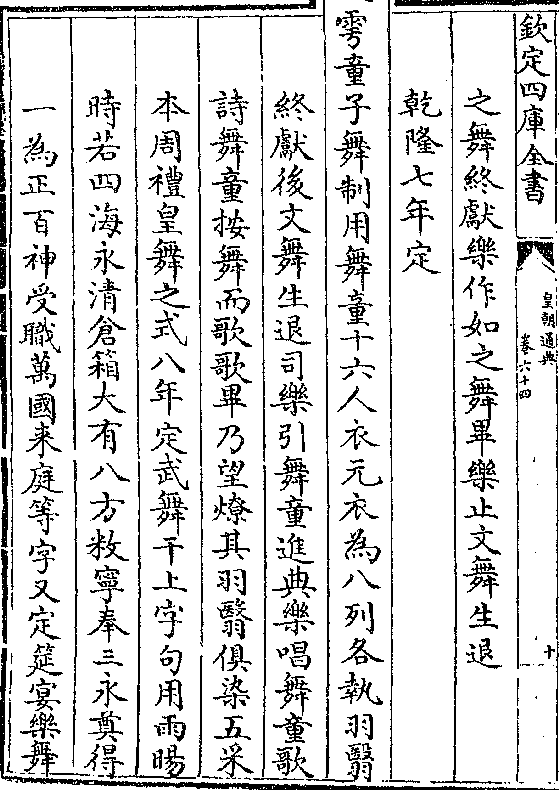 欽定四庫全書
皇朝通典
卷六十四
十
之舞終獻樂作如之舞畢樂止文舞生退
乾隆七年定
雩童子舞制用舞童十六人衣元衣為八列各執羽翳
終獻後文舞生退司樂引舞童進典樂唱舞童歌
詩舞童按舞而歌歌畢乃望燎其羽翳俱染五采
本周禮皇舞之式八年定武舞干上字句用雨暘
時若四海永清倉箱大有八方敉寧奉三永奠得
一為正百神受職萬國来庭等字又定筵宴樂舞